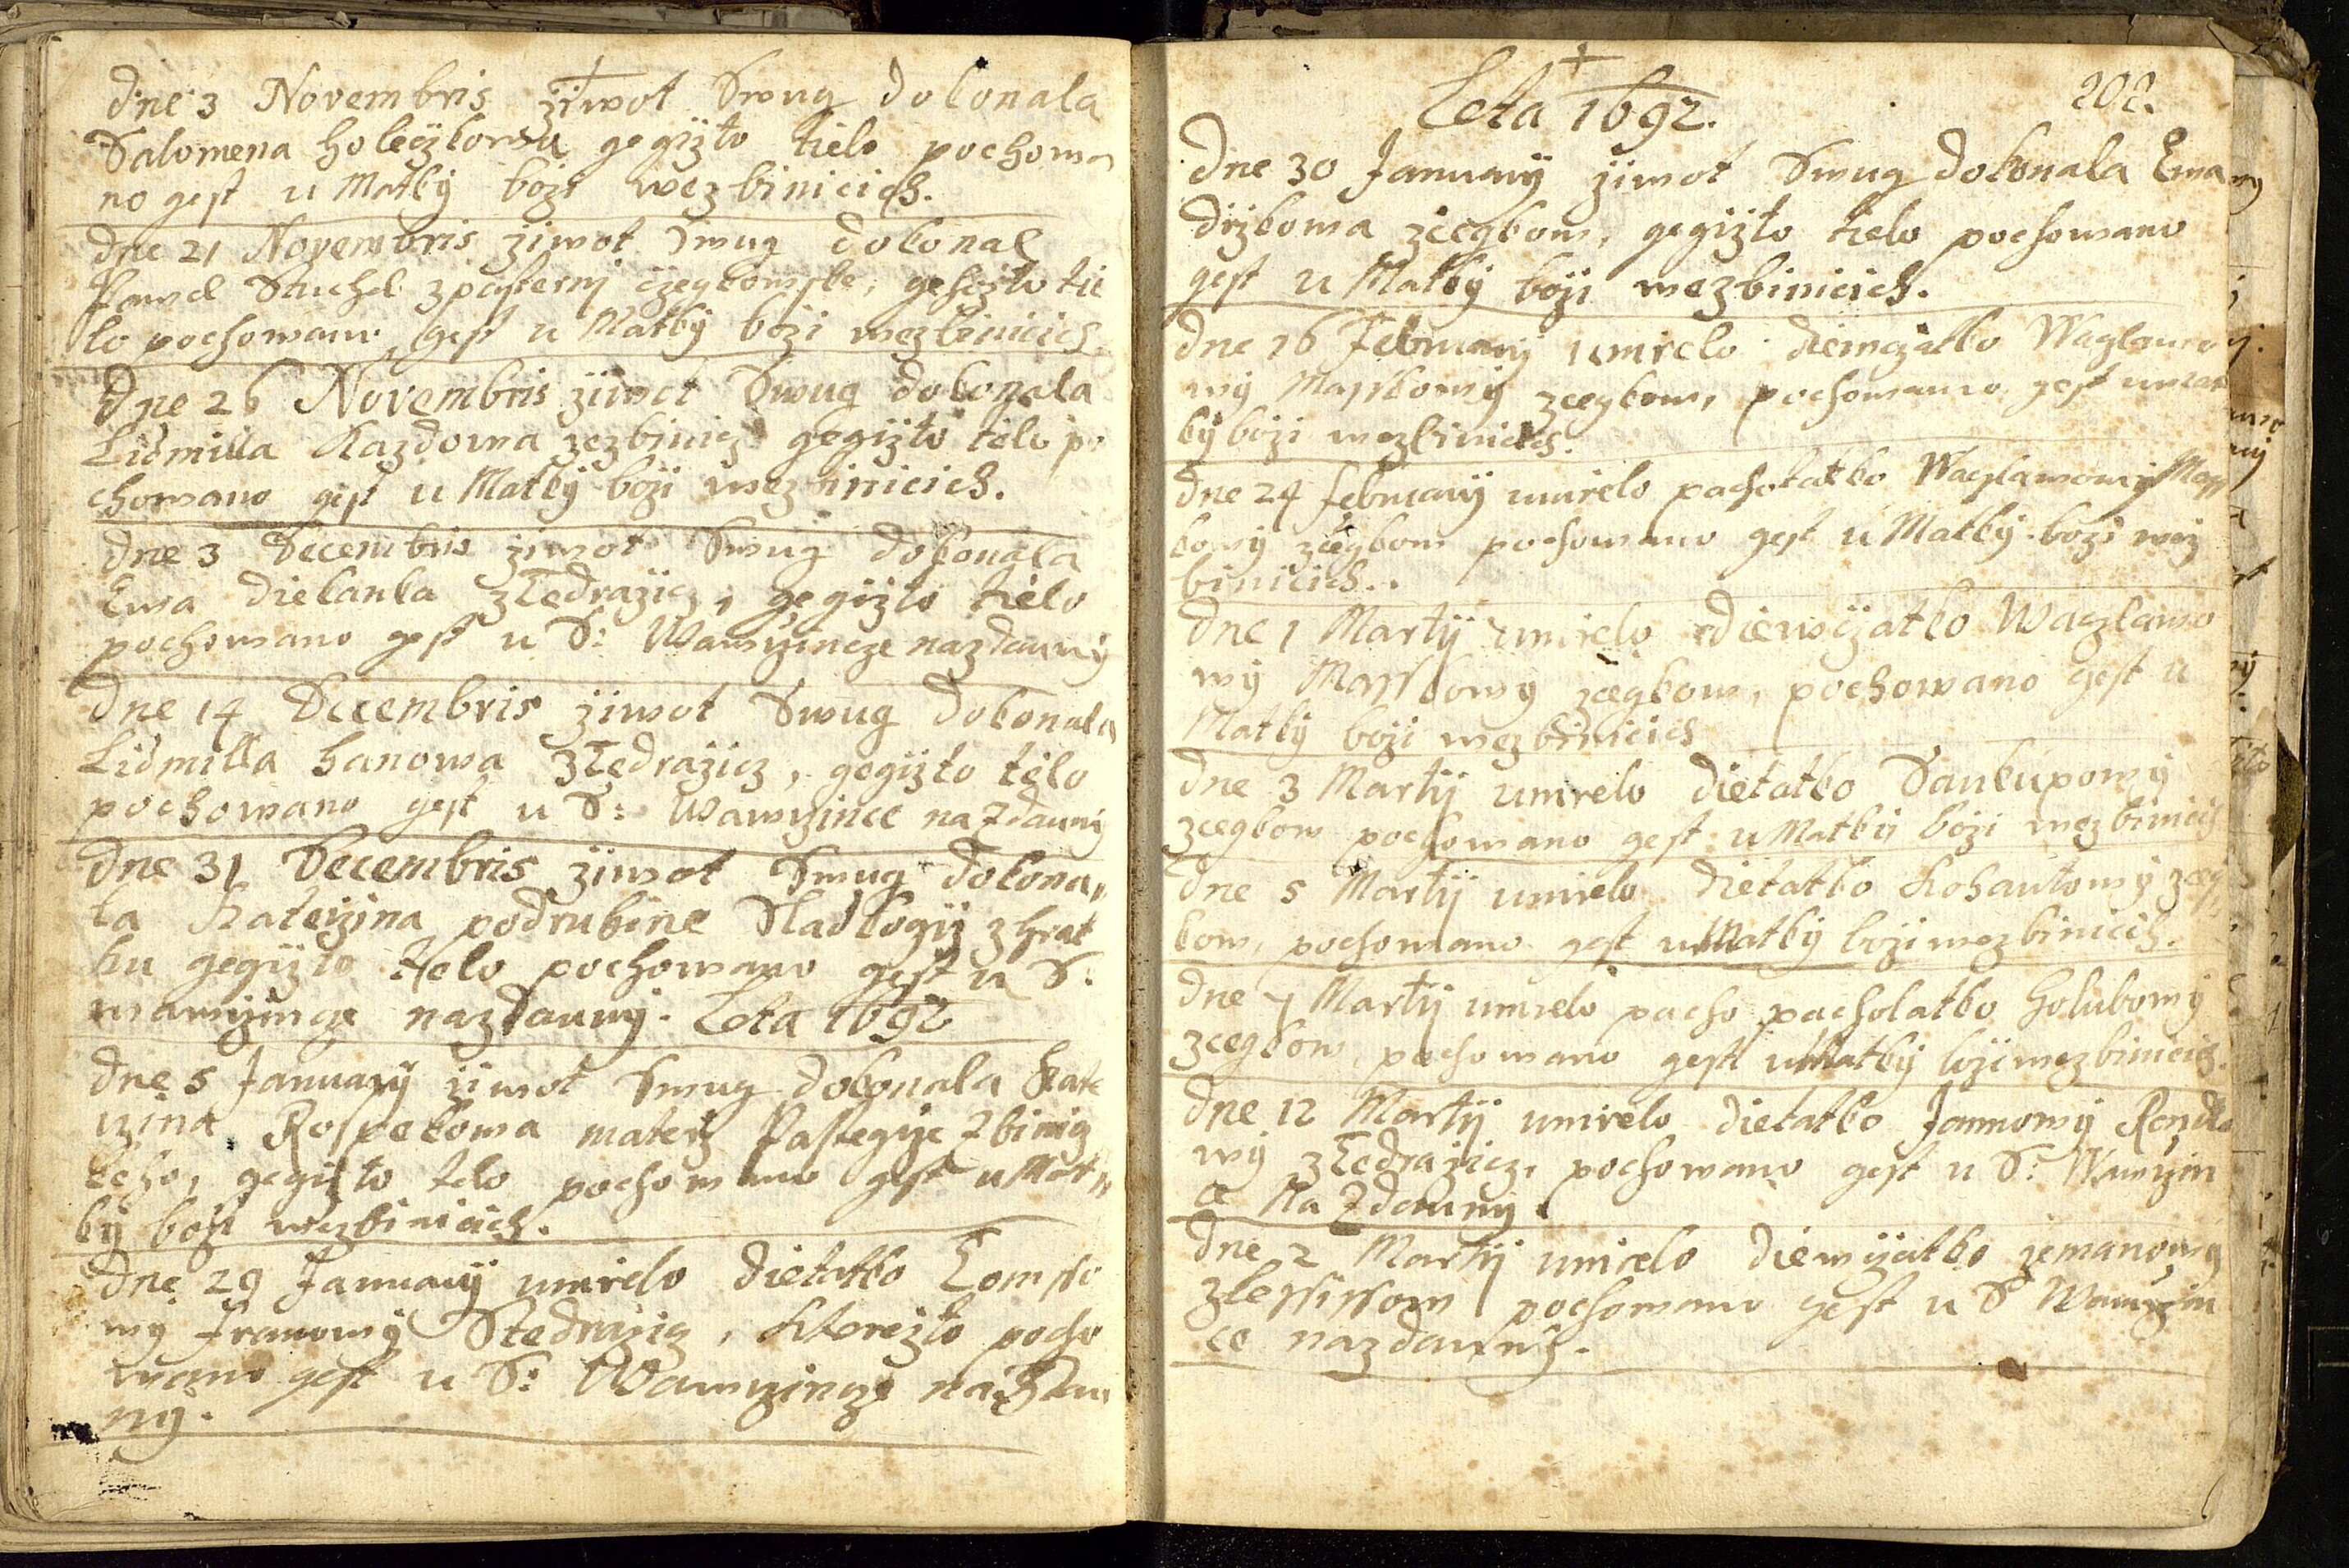 Dne 3 Novembris ziwot Swug dokonala
Salomena holeczkowa gegizto tielo pochowa
no gest u Matky bozi wezbiniciech.
Dne 21 Novembris ziwot Swug dokonal
Pawel z pasterny czegkowske, gehozto tie
lo pochowano gest u Matky bozi wezbiniciech
Dne 26 Novembris ziwot Swug dokonala
Lidmilla Kazdowa zezbinicz gegizto tielo po
chowano gest u Matky bozi wezbiniciech.
Dne 3 Decembris ziwot Swug dokonala
Ewa zStedrazicz, gegizto tielo
pochowano gest u S: Wawrzincze nazdauny
Dne 14 Decembris ziwot Swug dokonala
Lidmilla hanowa zStedrazicz, gegizto tielo
pochowano gest u S: Wawrzince na Zdauny
Dne 31 Decembris ziwot Swug dokona„
la Katerzina podruhine z hrat
ku gegizto tielo pochowano gest u S:
wawrzincze nazdauny. Leta 1692
Dne 5 January ziwot Swug dokonala Kate
rzina materz Zbinicz
keho, gegizto telo pochowano gest u Mat„
ky bozi wezbiniciech.
Dne 29 January umrelo dietatko Tomsso
wy Stedrazicz, kterezto pocho
wano gest u S: Wawrzincze na Zdau
ny.
Leta 1692.
202.
Dne 30 January ziwot Swug dokonala Ewa
zczegkow, gegizto tielo pochowano
gest u Matky bozi wezbiniciech.
Dne 16 February umrelo diewczatko Waczlawo
wy Masskowy zczegkow, pochowano gest u mat
ky bozi wezbiniciech.
Dne 24 february umrelo pacholatko Waczlawowy Mass
kowy zczegkow pochowano gest u Matky bozi wez
biniciech.
Dne 1 Martij umrelo diewczatko Waczlawo
wy Masskowy zczegkow, pochowano gest u
Matky bozi wezbiniciech
Dne 3 Martij umrelo dietatko Saukupowy
zczegkow pochowano gest u Matky bozi wezbiniciech
Dne 5 Martij umrelo dietatko Kohautowy zczeg
kow, pochowano gest u Matky bozi wezbiniciech.
Dne 7 Martij umrelo pacho pacholatko holubowy
zczegkow pochowano gest u Matky bozi wezbiniciech.
Dne 12 Martij umrelo dietatko Janowy
wy zStedrazicz, pochowano gest u S: Wawrzin
ce Na Zdauny.
Dne 2 Martij umrelo diewczatko zemanowy
zlessissow pochowano gest u S Wawrzin
ce nazdauny.